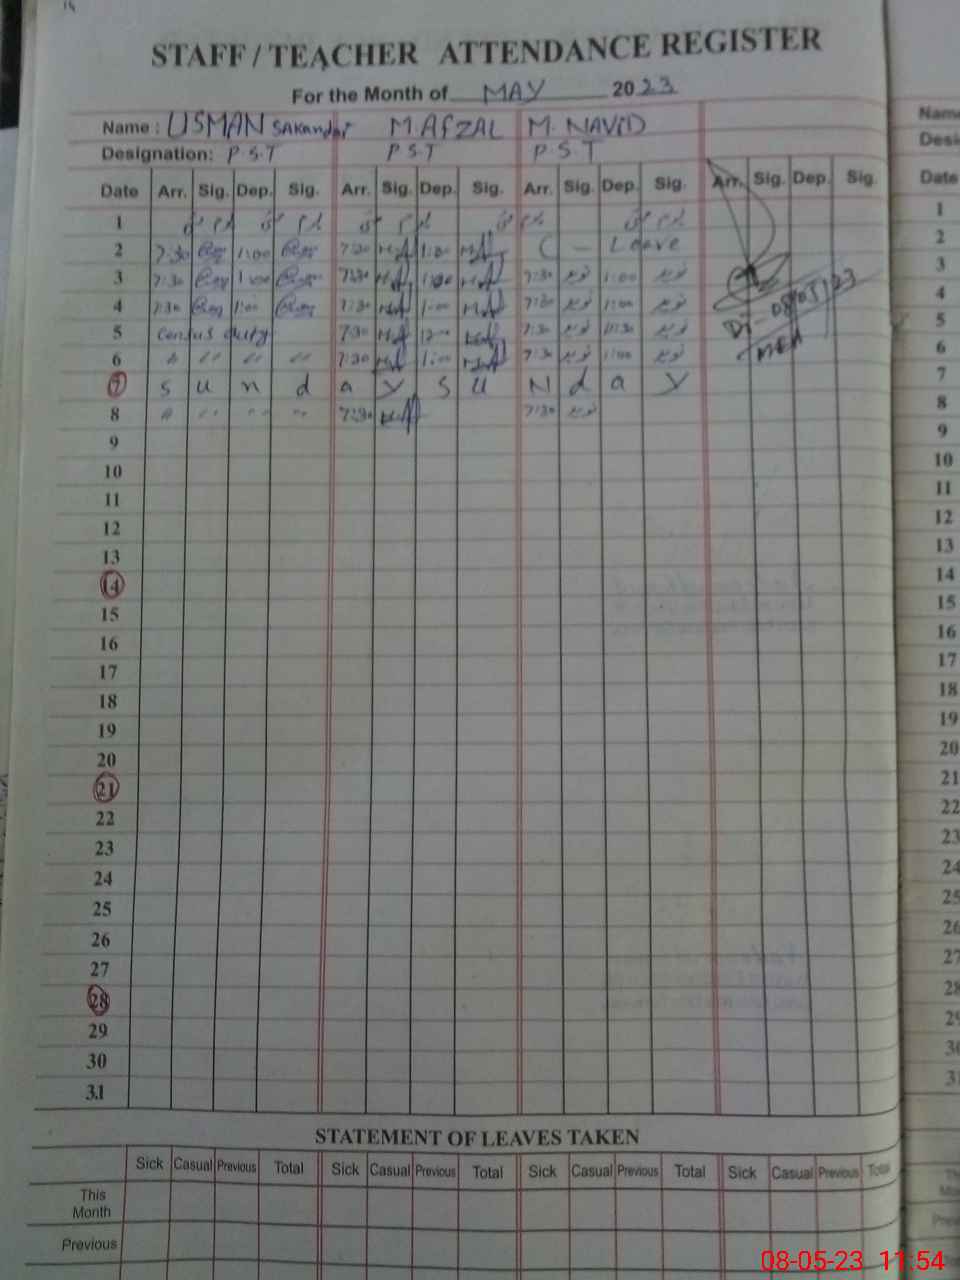 STAFF / TEACHER ATTENDANCE REGISTER
For the Month of MAY 2023
Name : USMAN SAKandar M. AFZAL M. NAVID
Name
Designation: P.S.T P.S.T P.S.T
Desi
Date Arr. Sig. Dep. Sig. Arr. Sig. Dep. Sig. Arr. Sig. Dep. Sig. Arr. Sig. Dep. Sig.
Date
1 یوم یوم یوم یوم 1
2 7:30 1:00 7:30 1:00 ( — Leave 2
3 7:30 1:00 7:30 1:00 7:30 نوید 1:00 نوید 3
4 7:30 1:00 7:30 1:00 7:30 نوید 1:00 نوید 4
Dt - 08/05/23
5 Census duty 7:30 12:00 7:30 نوید نوید 5
MEA
6 〃 〃 〃 〃 7:30 1:00 7:30 نوید 1:00 نوید 6
7 S u n d a y S u N d a y 7
8 〃 〃 〃 〃 7:30 7:30 نوید 8
9 9
10 10
11 11
12 12
13 13
14 14
15 15
16 16
17 17
18 18
19 19
20 20
21 21
22 22
23 23
24 24
25 25
26 26
27 27
28 28
29 29
30 30
31 31
STATEMENT OF LEAVES TAKEN
Sick Casual Previous Total Sick Casual Previous Total Sick Casual Previous Total Sick Casual Previous Total
This
Month
Previous
08-05-23 11:54